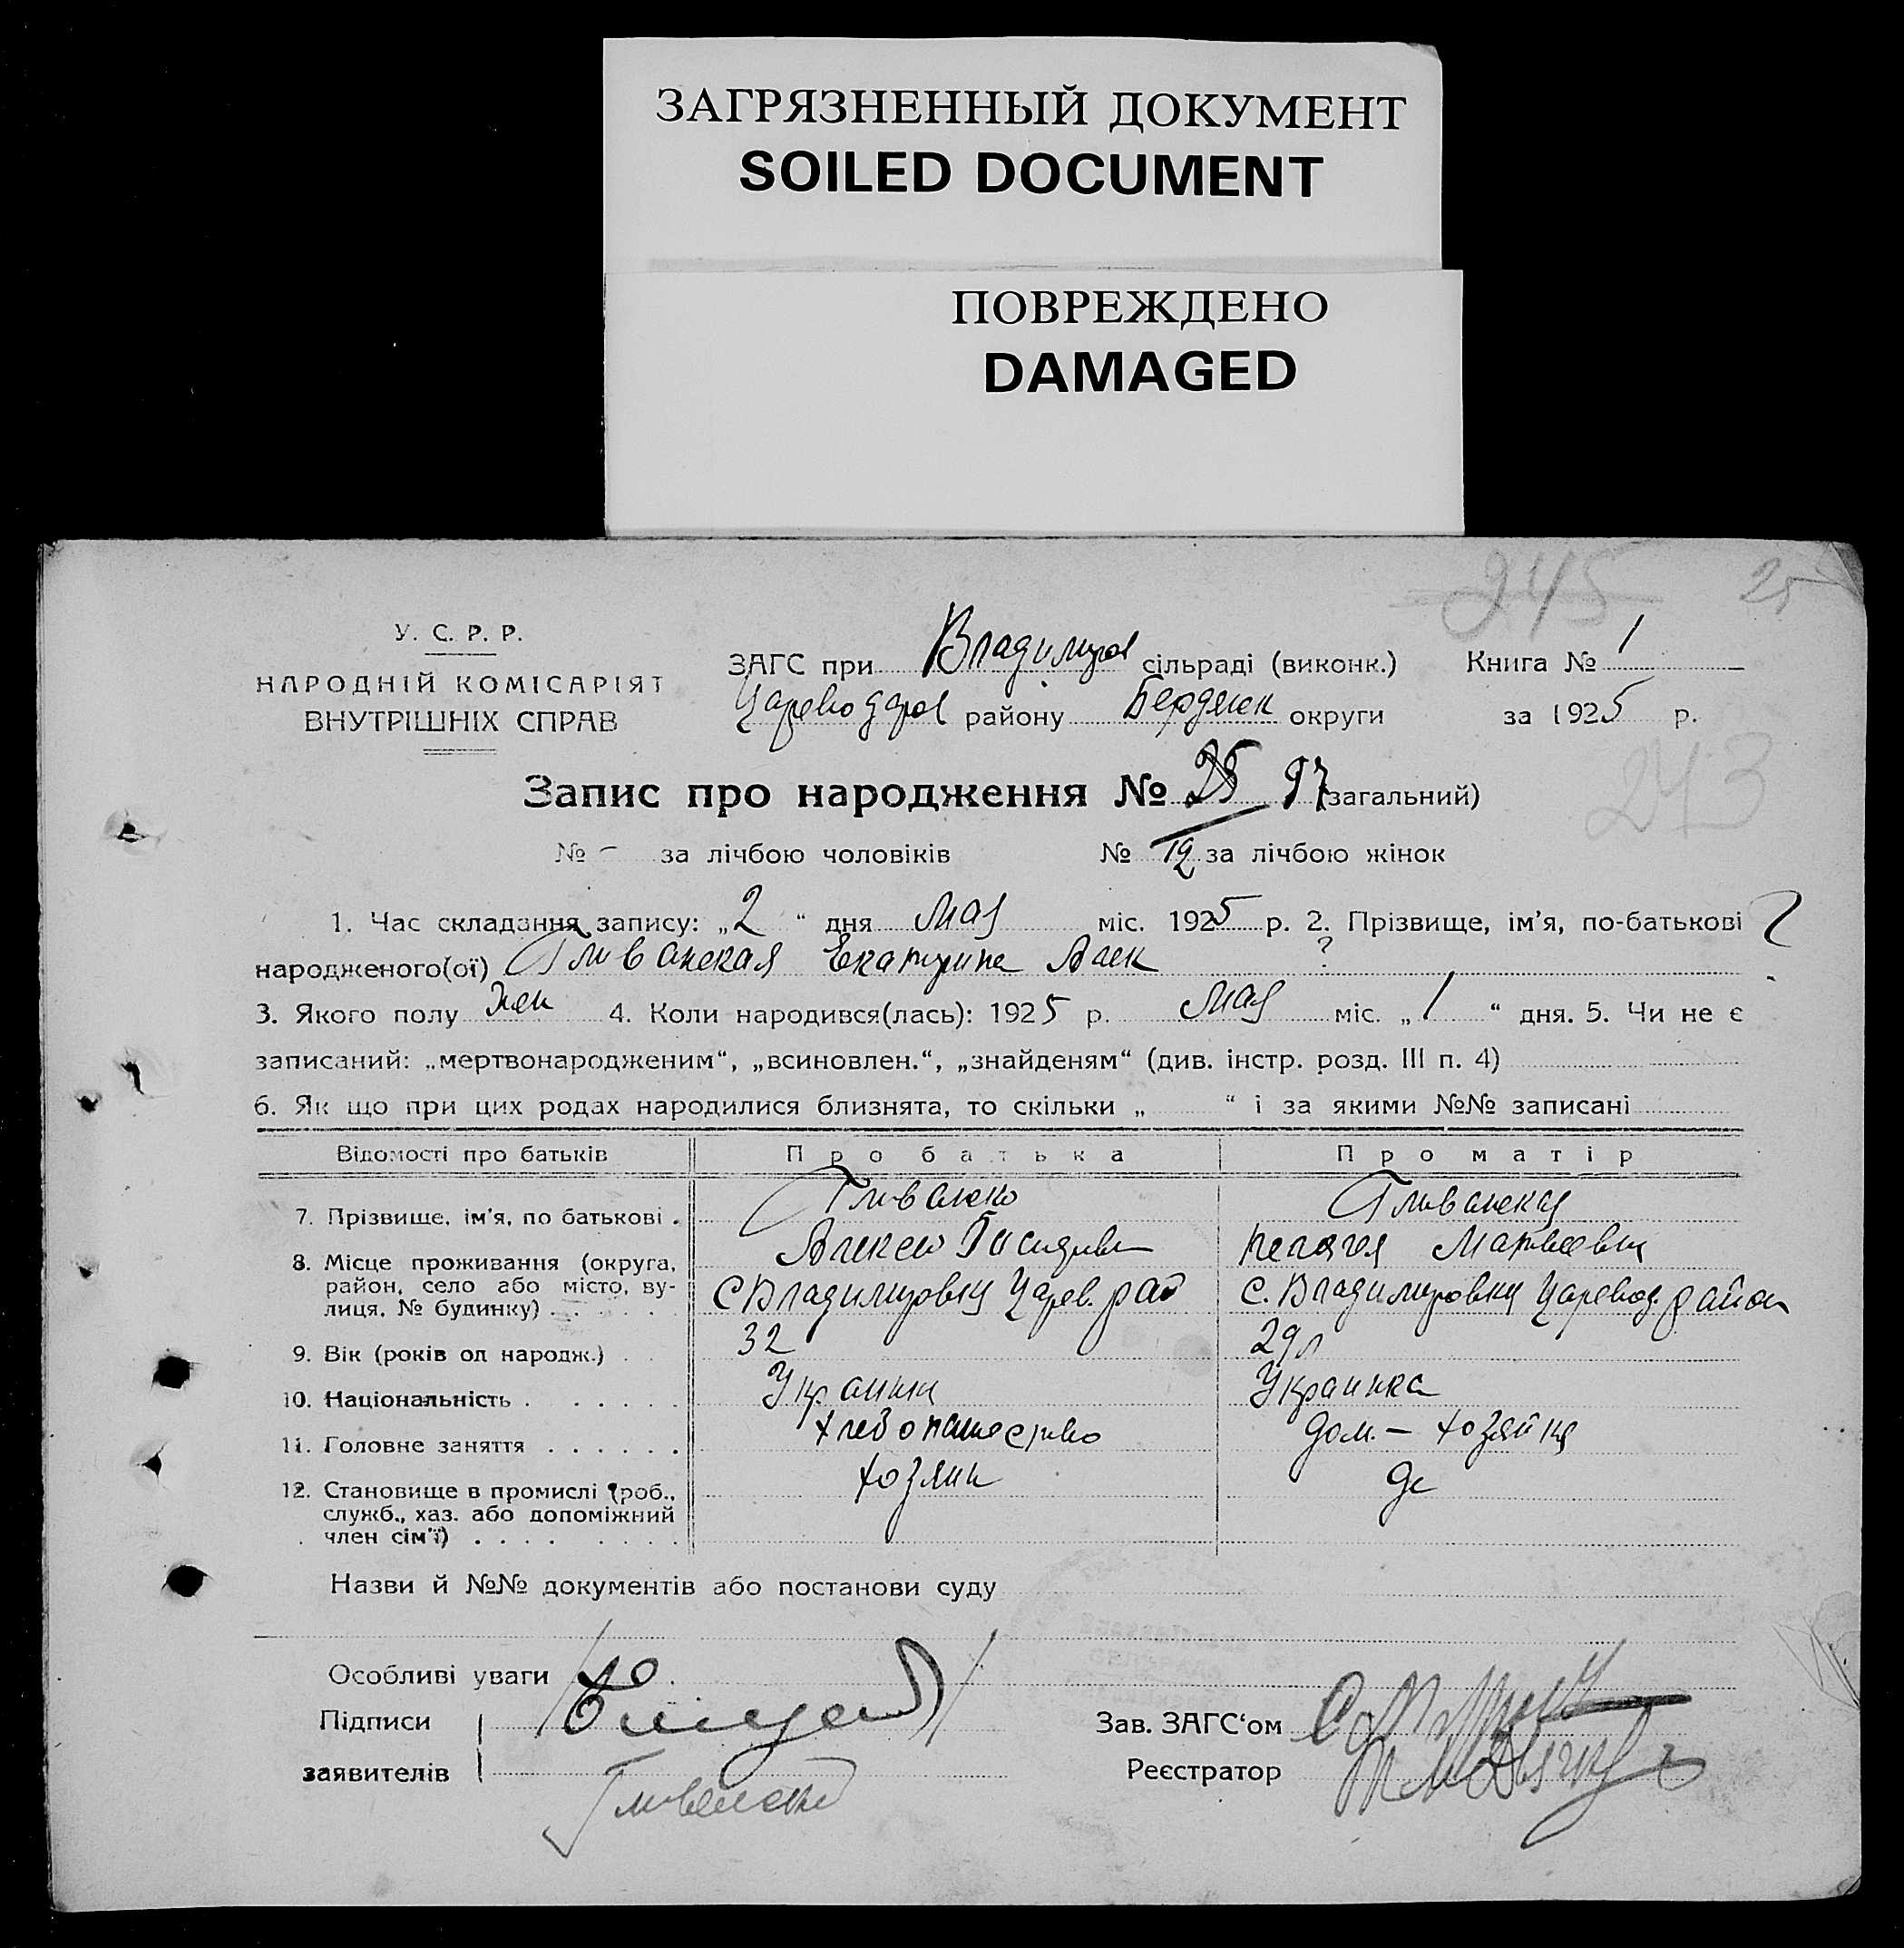 ЗАГРЯЗНЕННЫЙ ДОКУМЕНТ
SOILED DOCUMENT
ПОВРЕЖДЕНО
DAMAGED
245 25
У. С. Р. Р.
НАРОДНІЙ КОМІСАРІЯТ
ВНУТРІШНІХ СПРАВ
ЗАГС при Владимиров сільраді (виконк.) Книга № 1
Цареводаров району Бердянск округи за 1925 р.
243
Запис про народження № 25 97 (загальний)
№ - за лічбою чоловіків № 12 за лічбою жінок
1. Час складання запису: „2“ дня Мая міс. 1925 р. 2. Прізвище, ім'я, по-батькові
народженого(ої) Гливанская Екатерина Алек ?
3. Якого полу жен 4. Коли народився(лась): 1925 р. Мая міс. „1“ дня. 5. Чи не є
записаний: „мертвонародженим“, „всиновлен.“, „знайденям“ (див. інстр. розд. III п. 4)
6. Як що при цих родах народилися близнята, то скільки „ “ і за якими №№ записані
Відомості про батьків Про батька Про матір
7. Прізвище, ім'я, по батькові . Гливанско Гливанская
Алексей Пелагея Матвеевна
8. Місце проживання (округа, район, село або місто, вулиця, № будинку) . . С Владимировки Царев. рай С. Владимировки Царевод. район
9. Вік (років од народж.) . . 32 29 л
10. Національність . . . . . . Украинц Украинка
11. Головне заняття . . . . . . хлебопашество дом. - хозяйка
12. Становище в промислі (роб., служб., хаз. або допоміжний член сім'ї) . . . . . . . . хозяин
Назви й №№ документів або постанови суду
Особливі уваги
Підписи
Зав. ЗАГС'ом
заявителів
Реєстратор
Гливанский